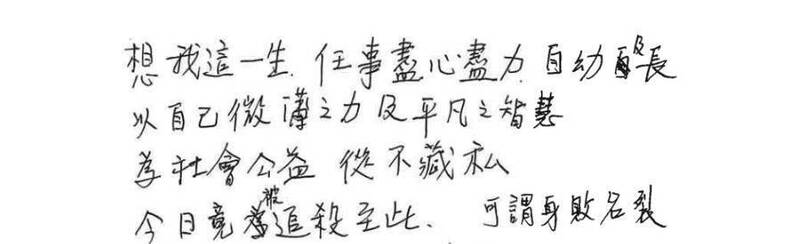 想我這一生.任事盡心盡力.自幼及長
以自己微薄之力及平凡之智慧
為社會公益 從不藏私
今日竟被追殺至此. 可謂身敗名裂